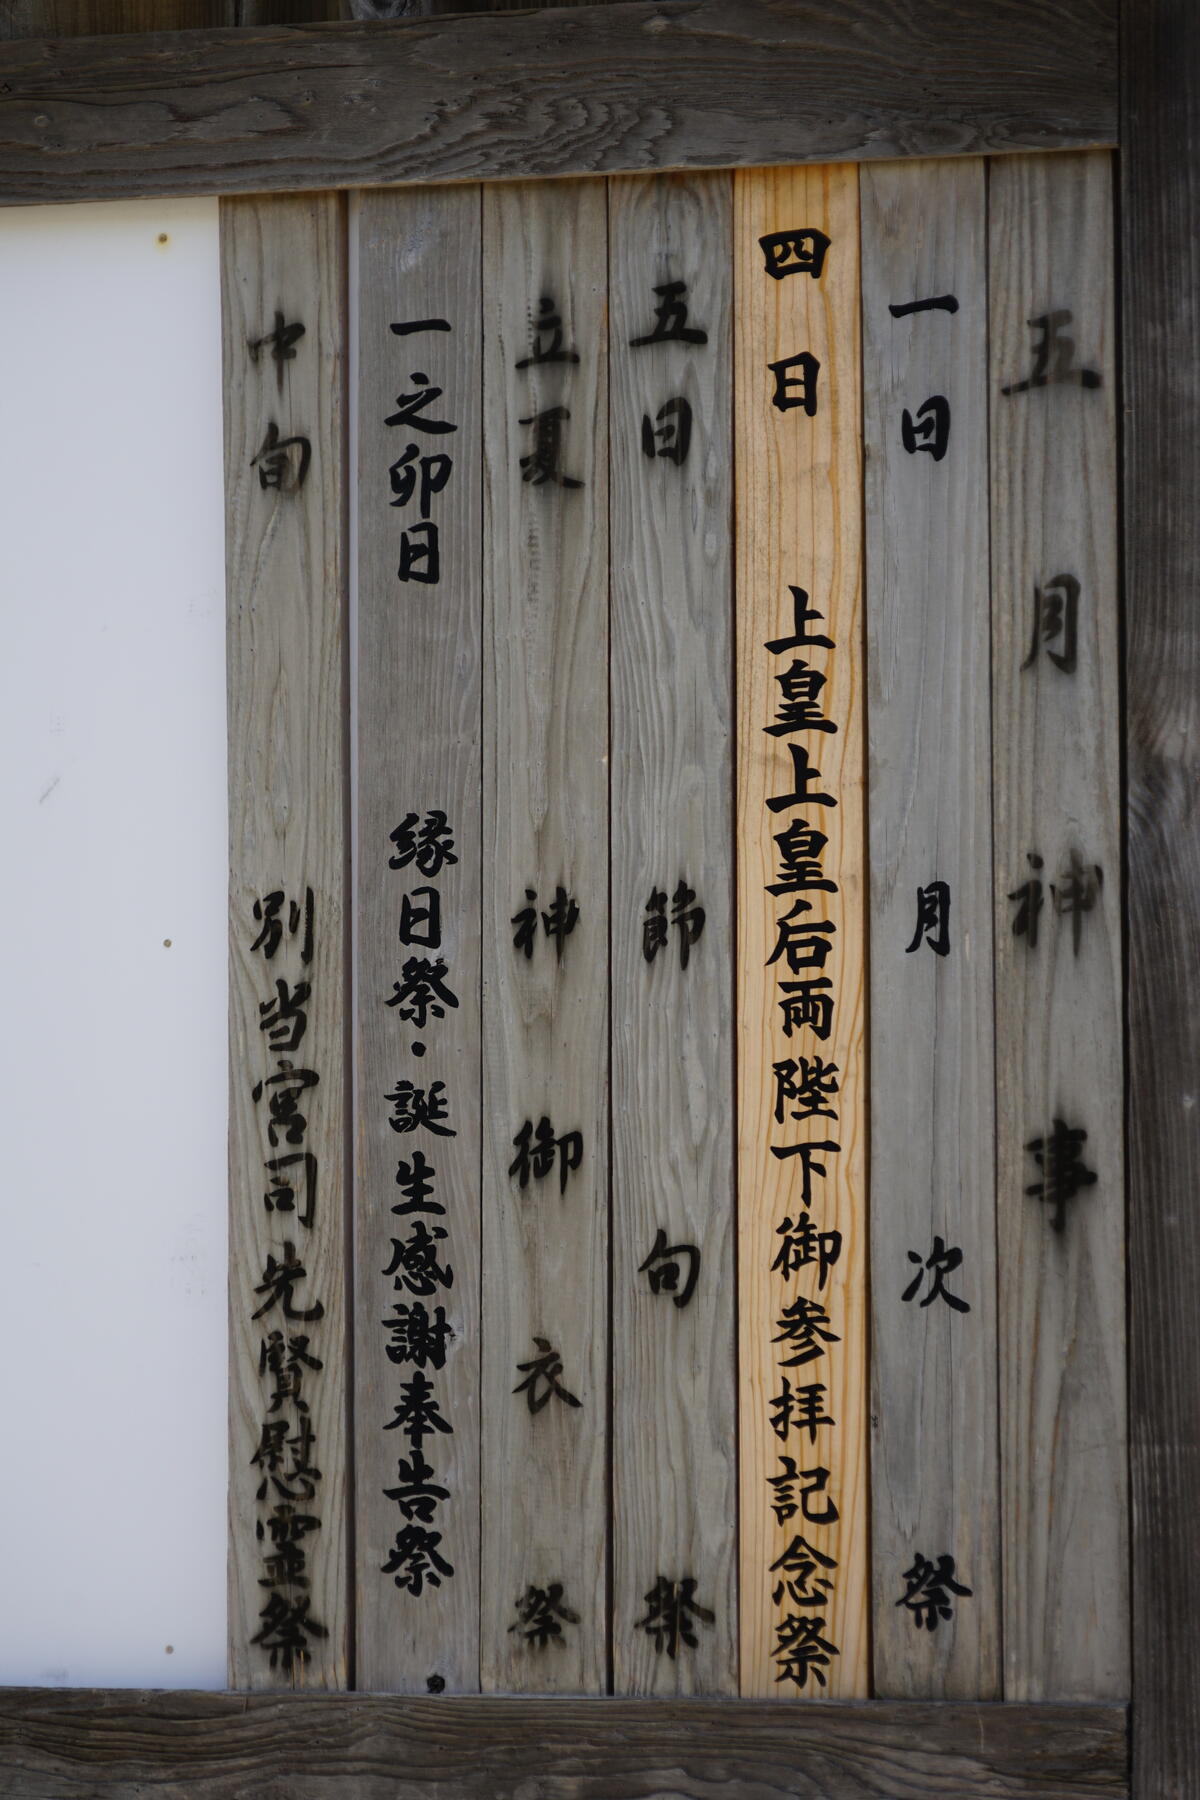 五月神事
一日 月次祭
四日 上皇上皇后両陛下御参拝記念祭
五日 節句祭
立夏 神御衣祭
一之卯日 縁日祭・誕生感謝奉告祭
中旬 別当宮司先賢慰霊祭